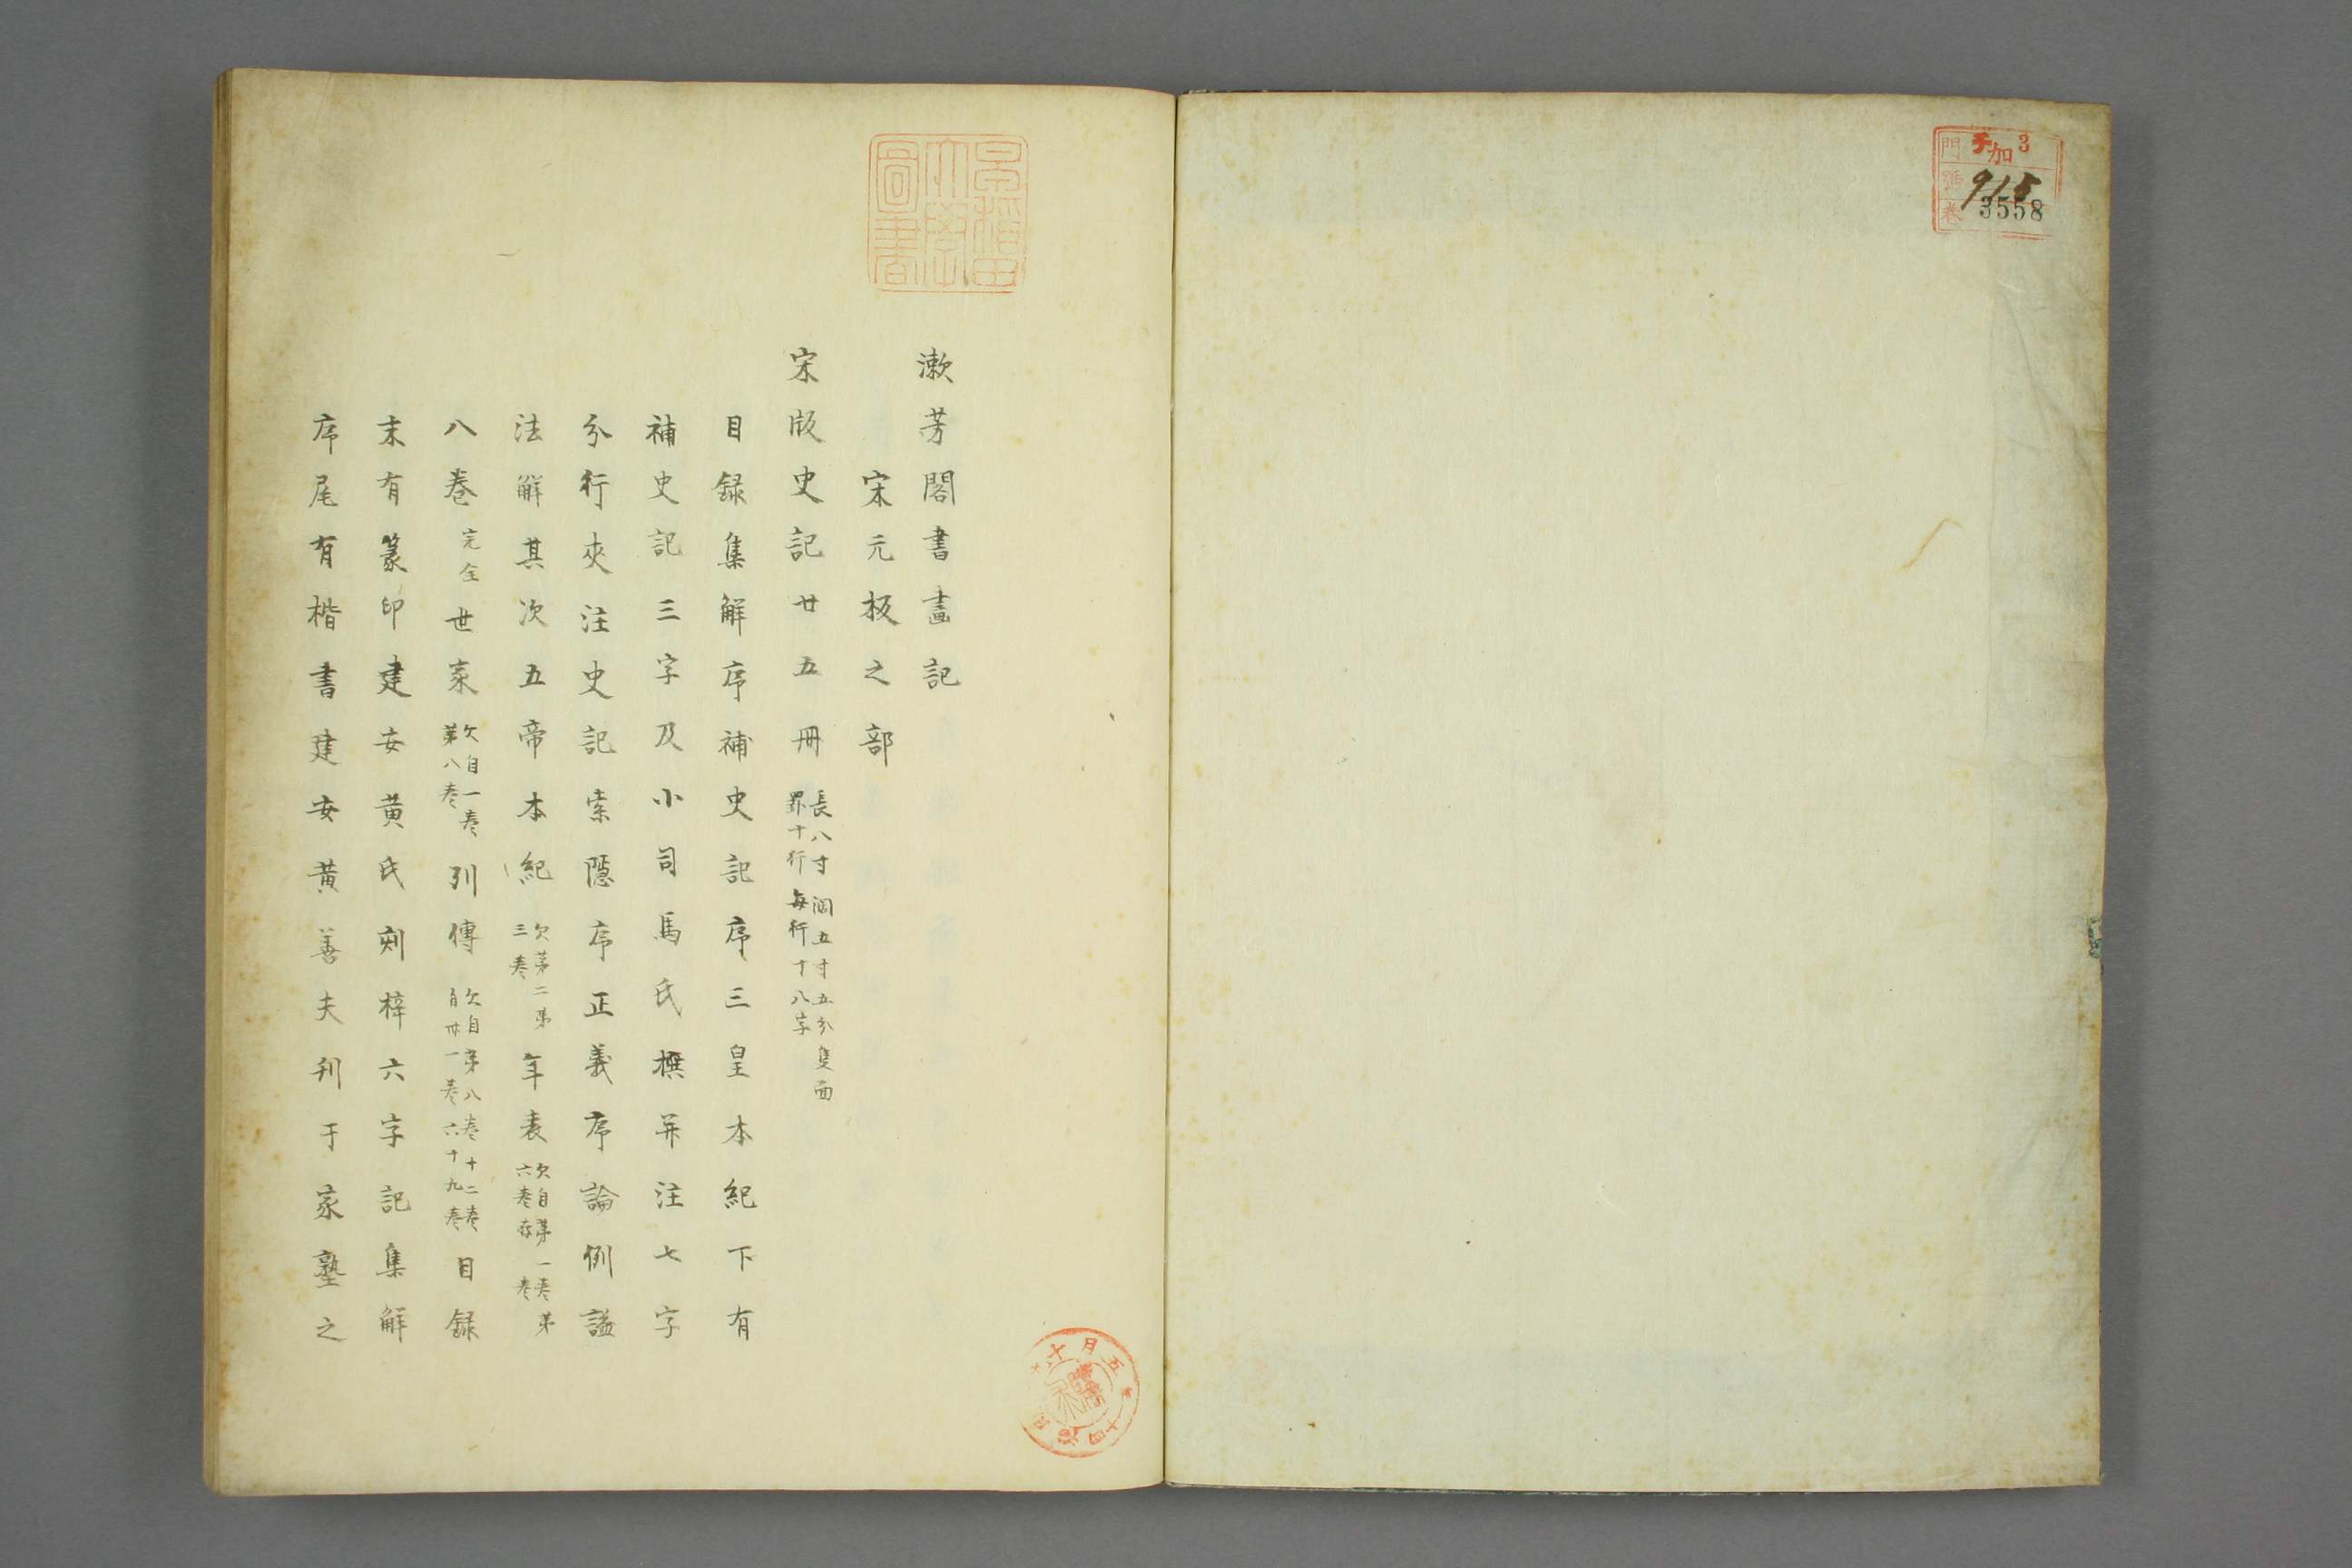 門 チ加 3
號 915
卷 3558
漱芳閣書畫記
宋元板之部
宋版史記廿五冊 長八寸濶五寸五分隻面 罫十行每行十八字
目録集解序補史記序三皇本紀下有
補史記三字及小司馬氏撰并注七字
分行夾注史記索隱序正義序論例謚
法解其次五帝本紀 欠第二第 三巻 年表 欠自第一巻第 六巻存 巻
八巻 完全 世家 欠自一巻 第八巻 列傳 欠自第八巻十二巻 自卅一巻六十九巻 目録
末有篆印建安黄氏刻梓六字記集解
序尾有楷書建安黄善夫刊于家塾之
早稲田大學圖書